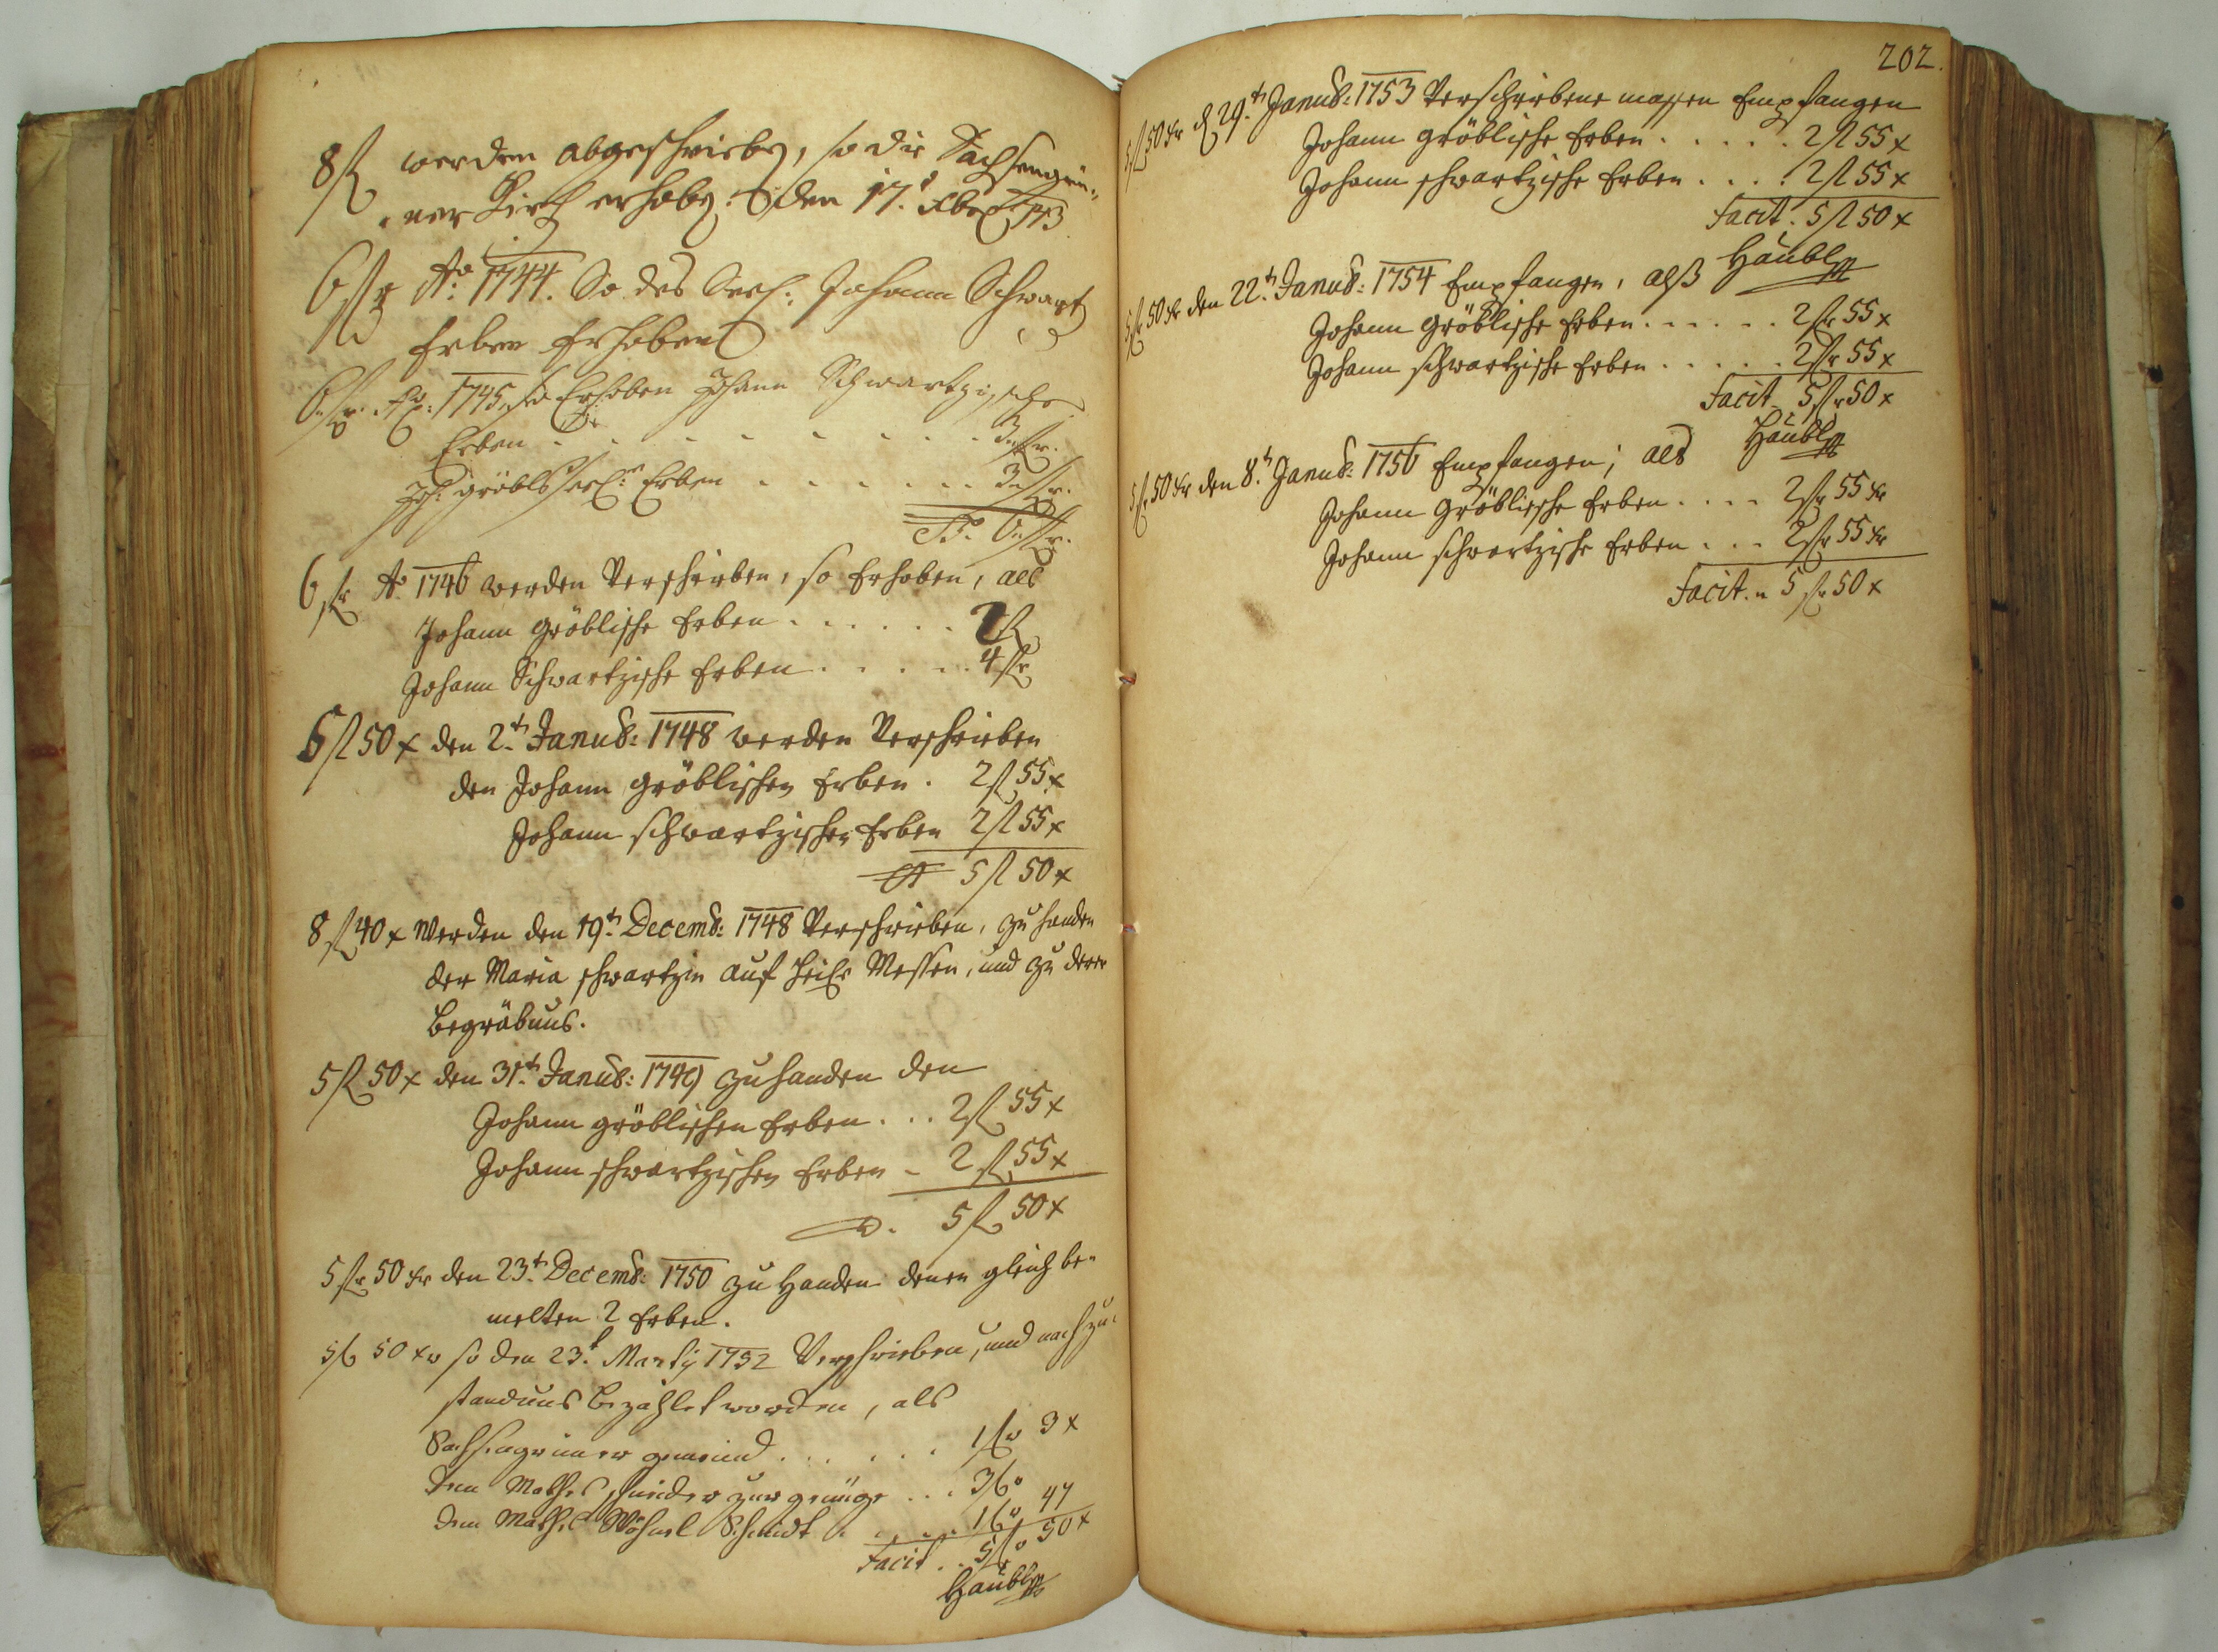 8 fl werden abgeschrieben, so die Sachsengrü-
ner Kirch erhoben. den 17. Xber 1743
6 fl Ao. 1744. So des Seel: Johann Schwartz
Erben Erhoben
6 fl. Ao: 1745, so Erhoben Johann Schwartzische
Erben . . . . . . . . 3 fl.
Joh: gröbls seel: Erben . . . . . . . 3 fl.
6 fl.
6 fl Ao 1746 werden Verschrieben, so Erhoben, als
Johann gröblische Erben . . . . . . 2 fl
Johann Schwartzische Erben . . . . . 4 fl
5 fl 50 x den 2.t Janua: 1748 werden Verschrieben
den Johann gröblischen Erben . 2 fl 55 x
Johann schwartzischen Erben 2 fl 55 x
5 fl 50 x
8 fl 40 x Werden den 19.t Decemb: 1748 Verschrieben, zu handen
der Maria schwartzin auf Heil: Messen, und zu derer
Begräbnus.
5 fl 50 x den 31.t Janua: 1749 zu handen den
Johann gröblischen Erben . . . 2 fl 55 x
Johann schwartzischen Erben - 2 fl 55 x
5 fl 50 x
5 fl 50 xr den 23.t Decemb: 1750 zu Handen denen gleich be-
melten 2 Erben.
5 fl 50 xr so den 23.t Martij 1752 Verschrieben, und nach zu-
standnus bezahlet worden, als
Sachsengrüner gemeind . . . . . . 1 fl 3 x
dem Mathes zur genüge . . . 3 fl
dem Mathes Schmidt . . . . . 1 fl 47
Facit . . 5 fl 50 x
Häubl
202.
5 fl 50 xr d 29.t Janua: 1753 Verschriebene massen Empfangen
Johann gröblische Erben . . . . . 2 fl 55 x
Johann schwartzische Erben . . . . 2 fl 55 x
Facit. 5 fl 50 x
Häubl
5 fl 50 xr den 22.t Janua: 1754 Empfangen, alß
Johann Gröblische Erben . . . . . . 2 fl 55 x
Johann schwartzische Erben . . . . . 2 fl 55 x
Facit 5 fl 50 x
Häubl
5 fl 50 xr den 8.t Janua: 1756 Empfangen, als
Johann Gröblische Erben . . . . 2 fl 55 xr
Johann schwartzische Erben . . . 2 fl 55 xr
Facit. 5 fl 50 x